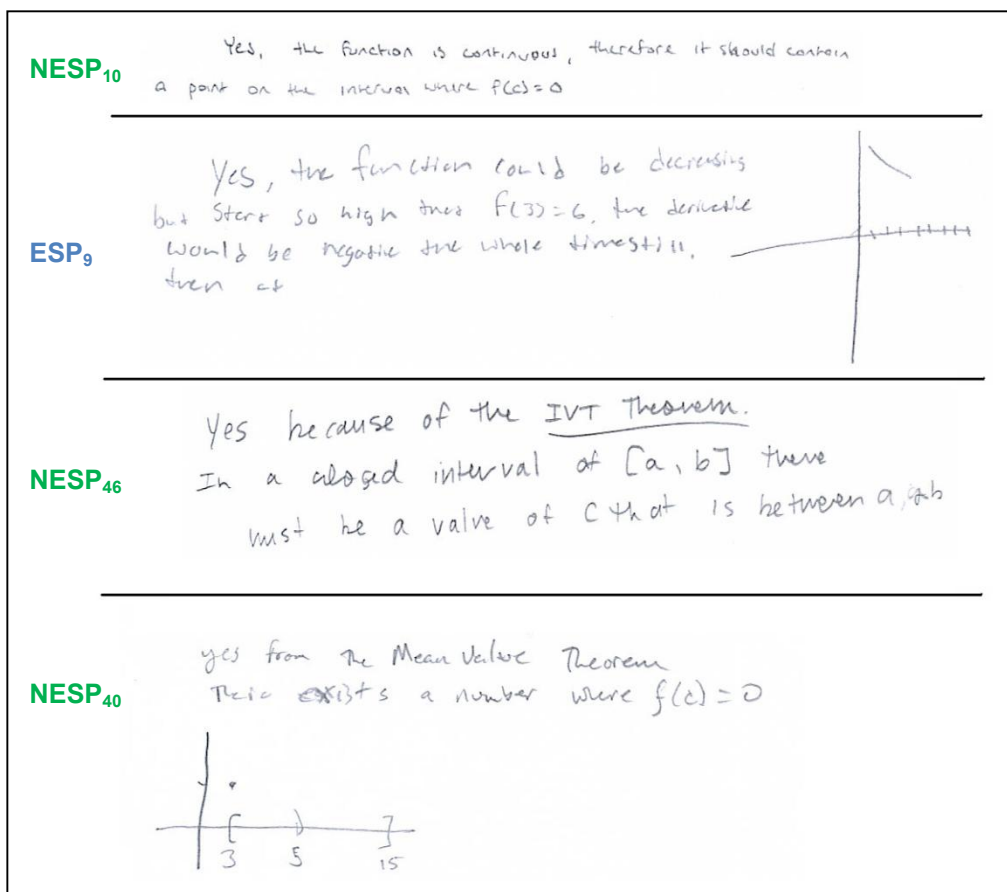 NESP10
Yes, the function is continuous, therefore it should contain
a point on the interval where f(c)=0
ESP9
Yes, the function could be decreasing
but start so high that f(3)=6, the derivative
would be negative the whole time still,
then at
NESP46
Yes because of the IVT Theorem.
In a closed interval of [a, b] there
must be a value of C that is between a, b
NESP40
yes from The Mean Value Theorem
There exists a number where f(c)=0
3 5 15